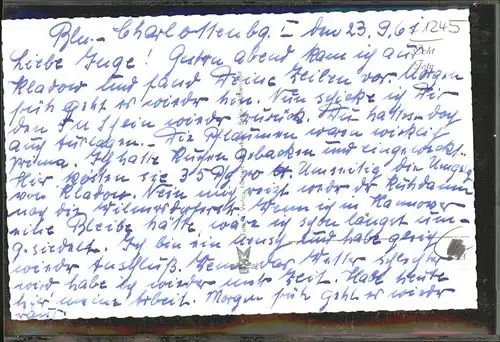 Bln.-Charlottenbg. I den 23.9.61
1245
Echt
Foto
Liebe Inge! Gestern abend kam ich aus
Kladow und fand Deine Zeilen vor. Morgen
früh geht es wieder hin. Nun schicke ich Dir
den wieder zurück. Du hattest doch
auch Auslagen. Die Pflaumen waren wirklich
prima. Ich hatte Kuchen gebacken und eingeweckt.
Hier kosten sie 35 Umseitig die Umgeg.
von Kladow. Nein mich reizt weder der Kuhdamm
noch die Wilmersdorferstr. Wenn ich in Hannover
eine Bleibe hätte, wäre ich schon längst um-
gesiedelt. Ich bin ein Mensch und habe gern
wieder Anschluß. Wenn das Wetter schlecht
wird habe ich wieder mehr Zeit. Habe heute
hier meine Arbeit. Morgen früh geht es wieder
raus.